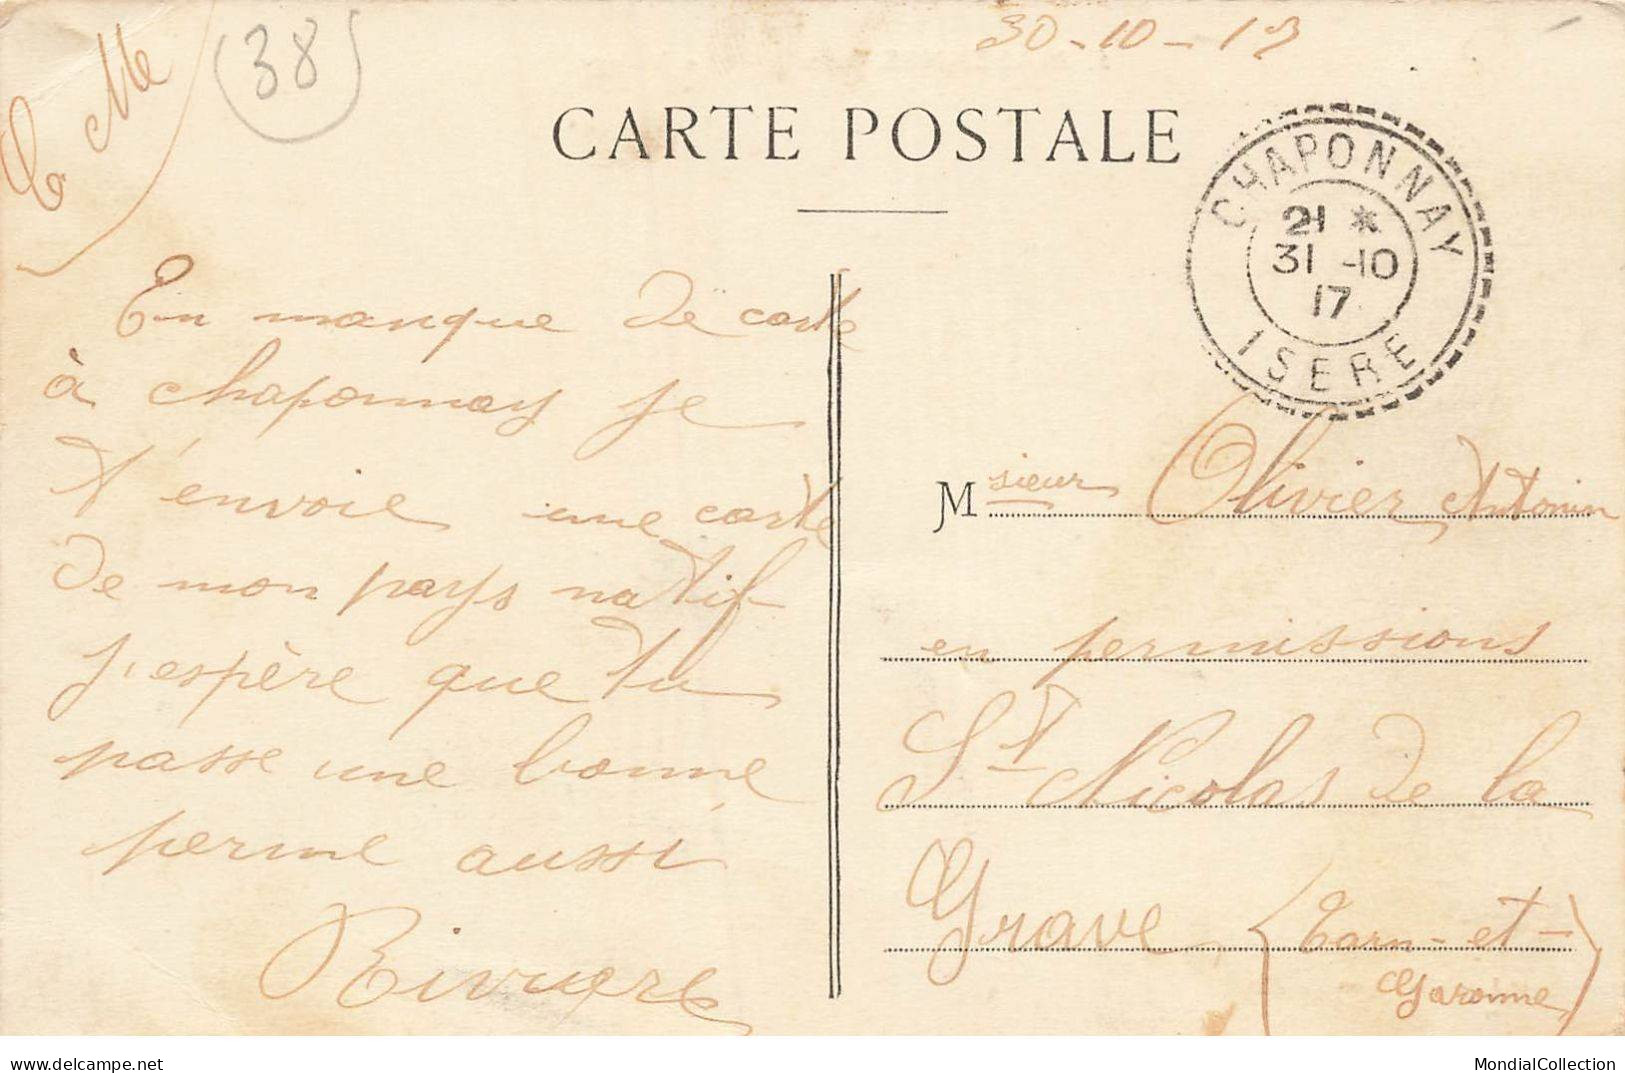 30-10-17
(38)
CARTE POSTALE
CHAPONNAY
21 *
31 -10
17
ISERE
En manque de carte
à chaponnay je
t'envoie une carte
de mon pays natif
j'espère que tu
passe une bonne
perme aussi
Msieur Olivier Antonin
en permissions
St Nicolas de la
Grave (Tarn-et-
Garonne)
delcampe.net
MondialCollection